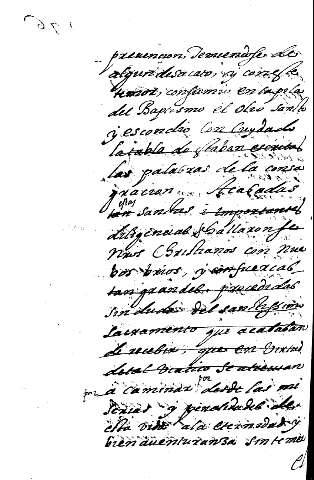 prevencion, temiendose de
algun desacato, y con este
temor, consumio en la pila
del Baptismo el Oleo Santo
y escondio con Cuydado
la tabla de estaban escritas
las palabras de la consa
gracion. Acabadas
estas
tan santas e importantes
diligencias se hallaron se
nros Christianos con nue
bos brios, y con fuerças
tan grandes, procedidas
sin duda del santissimo
sacramento que acababan
de recebir, que en virtud
de tal Viatico se atrevian
por
a caminar desde las mi
por
serias y penalidades de
esta vida a la eternidad y
bienaventuranza sin temer
el